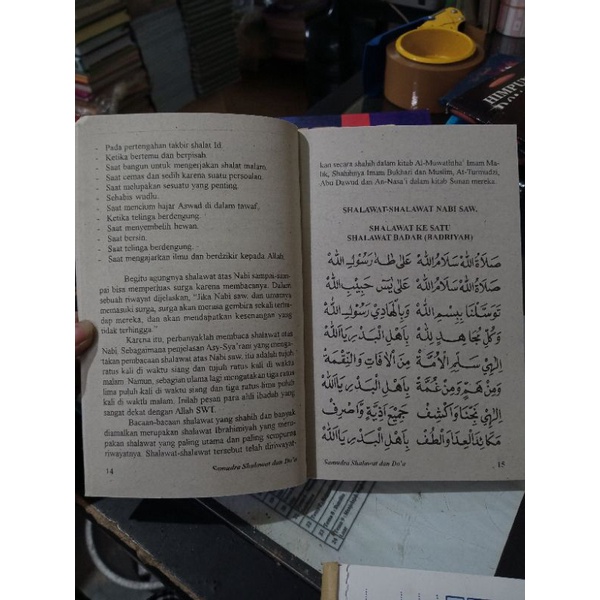 - Pada pertengahan takbir shalat Id.
- Ketika bertemu dan berpisah.
- Saat bangun untuk mengerjakan shalat malam.
- Saat cemas dan sedih karena suatu persoalan.
- Saat melupakan sesuatu yang penting.
- Sehabis wudlu.
- Saat mencium hajar Aswad di dalam tawaf.
- Ketika telinga berdengung.
- Saat menyembelih hewan.
- Saat bersin.
- Saat telinga berdengung.
- Saat mengajarkan ilmu dan berdzikir kepada Allah
Begitu agungnya shalawat atas Nabi sampai-sam-
pai bisa memperluas surga karena membacanya. Dalam
sebuah riwayat dijelaskan, "Jika Nabi saw, dan umatnya
memasuki surga, surga akan merasa gembira sekali terha-
dap mereka, dan akan mendapatkan kesenangan yang
tidak terhingga."
Karena itu, perbanyaklah membaca shalawat atas
Nabi. Sebagaimana penjelasan Asy-Sya'ram yang menga-
takan pembacaan shalawat atas Nabi saw, itu adalah tujuh
ratus kali di waktu siang dan tujuh ratus kali di waktu
malam. Namun, sebagian ulama lagi mengatakan tiga ratus
lima puluh kali di waktu siang dan tiga ratus lima puluh
kali di waktu malam. Inilah pesan para ahli ibadah yang
sangat dekat dengan Allah SWT.
Bacaan-bacaan shalawat yang shahih dan banyak
diamalkan merupakan shalawat Ibrahimiyah yang merus-
pakan shalawat yang paling utama dan paling sempurna
riwayatnya. Shalawat-shalawat tersebut telah diriwayat-
14 Samudra Shalawat dan Do'a
kan secara shahih dalam kitab Al-Muwaththa' Imam Ma-
lik, Shahihnya Imam Bukhari dan Muslim, At-Turmudzi,
Abu Dawud dan An-Nasa'i dalam kitab Sunan mereka.
SHALAWAT-SHALAWAT NABI SAW.
SHALAWAT KE SATU
SHALAWAT BADAR (BADRIYAH)
صَلَاةُ اللهْ سَلَامُ اللهْ عَلَى طٰهَ رَسُوْلِ اللهْ
صَلَاةُ اللهْ سَلَامُ اللهْ عَلَى يٰسٓ حَبِيْبِ اللهْ
تَوَسَّلْنَا بِبِسْمِ اللهْ وَبِالْهَادِيْ رَسُوْلِ اللهْ
وَكُلِّ مُجَاهِدٍ لِلّٰهْ بِأَهْلِ الْبَدْرِ يَا اَللهْ
اِلٰهِيْ سَلِّمِ الْأُمَّةْ مِنَ الْأٰفَاتِ وَالنِّقْمَةْ
وَمِنْ هَمٍّ وَمِنْ غُمَّةْ بِأَهْلِ الْبَدْرِ يَا اَللهْ
اِلٰهِيْ نَجِّنَا وَاكْشِفْ جَمِيْعَ اَذِيَّةٍ وَاصْرِفْ
مَكَائِدَ الْعِدَا وَالْطُفْ بِأَهْلِ الْبَدْرِ يَا اَللهْ
Samudra Shalawat dan Do'a 15
HIMPUN